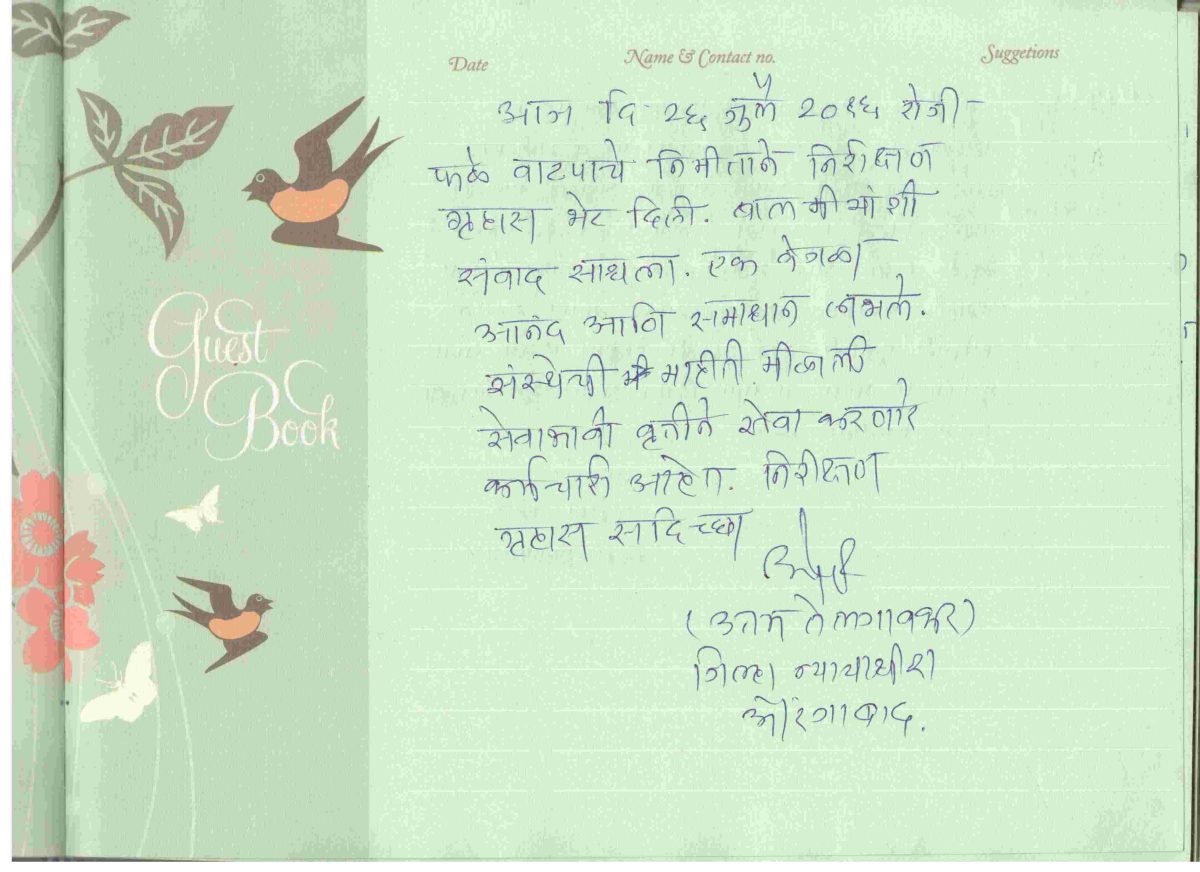 Guest
Book
Date Name & Contact no. Suggetions
आज दि. २६ जुलै २०१६ रोजी
फळे वाटपाचे निमीताने निरीक्षण
गृहास भेट दिली. बालमीत्रांशी
संवाद साधला. एक वेगळा
आनंद आणि समाधान लाभले.
संस्थेची माहीती मीळाली
सेवाभावी वृत्तीने सेवा करणारे
कर्मचारी आहेत. निरीक्षण
गृहास सदिच्छा
(उत्तम तेलगावकर)
जिल्हा न्यायाधीश
औरंगाबाद.